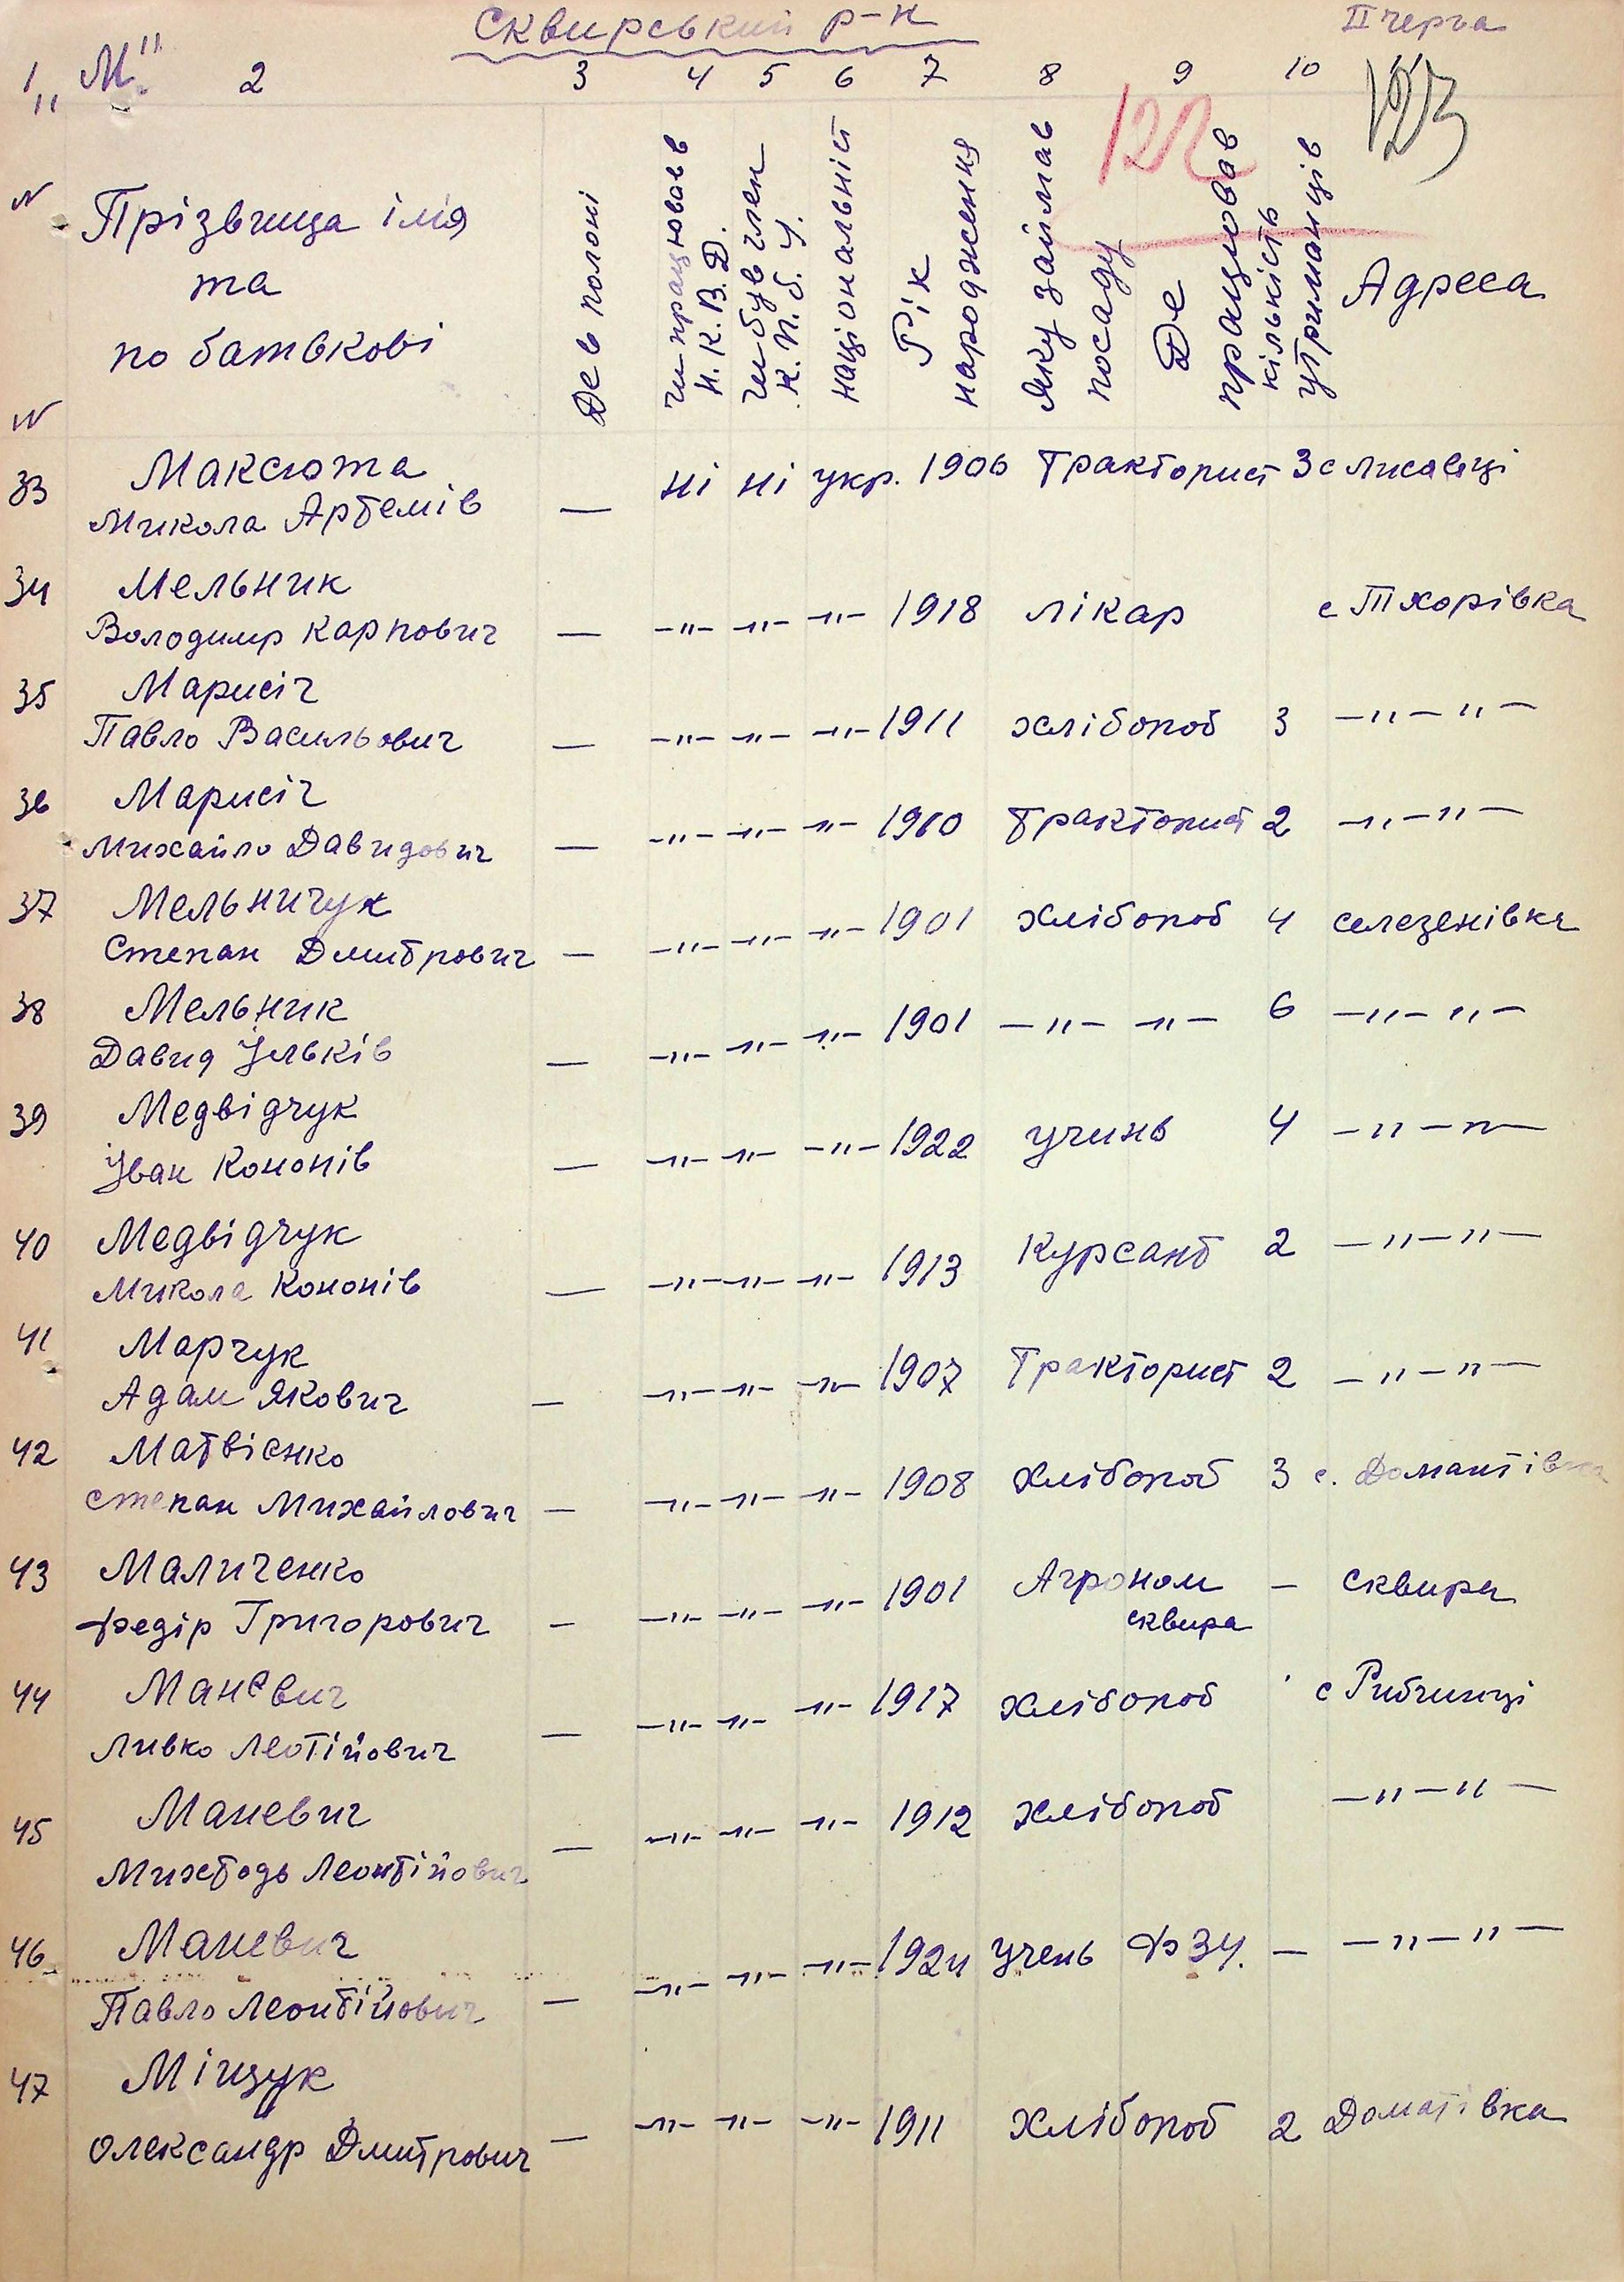 Сквирський р-н
II черга
„М"
1 2 3 4 5 6 7 8 9 10 11
122
123
N N
Прізвища ім'я
та
по батькові
Де в полоні
Чи працював в
Н.К.В.Д.
Чи був член
К.П.б.У.
Національність
Рік
народження
Яку займав
посаду
Де
працював
кількість
утриманців
Адреса
33 Максюта
Микола Артемів — ні ні укр. 1906 Тракторист 3 с Лисавеці
34 Мельник
Володимир Карпович — -"- -"- -"- 1918 лікар с Тхорівка
35 Марисіч
Павло Васильович — -"- -"- -"- 1911 хлібороб 3 —"—"—
36 Марисіч
Михайло Давидович — -"- -"- -"- 1910 тракторист 2 —"—"—
37 Мельничук
Степан Дмитрович — -"- -"- -"- 1901 хлібороб 4 селезенівка
38 Мельник
Давид Ільків — -"- -"- -"- 1901 —"— —"— 6 —"—"—
39 Медвідчук
Іван Кононів — -"- -"- -"- 1922 учинь 4 —"—"—
40 Медвідчук
Микола Кононів — -"- -"- -"- 1913 Курсант 2 —"—"—
41 Марчук
Адам Якович — -"- -"- -"- 1907 Тракторист 2 —"—"—
42 Матвієнко
степан Михайлович — -"- -"- -"- 1908 хлібороб 3 с. Домантівка
43 Маличенко
Федір Григорович — -"- -"- -"- 1901 Агроном – сквира
сквира
44 Маневич
Ливко Леотійович — -"- -"- -"- 1917 хлібороб с Рибчинці
45 Маневич
Михтодь Леонтійович — -"- -"- -"- 1912 хлібороб —"—"—
46 Маневич
Павло Леонтійович — -"- -"- -"- 1924 учень ФЗУ. — —"—"—
47 Міщук
Олександр Дмитрович — -"- -"- -"- 1911 хлібороб 2 Доматівка